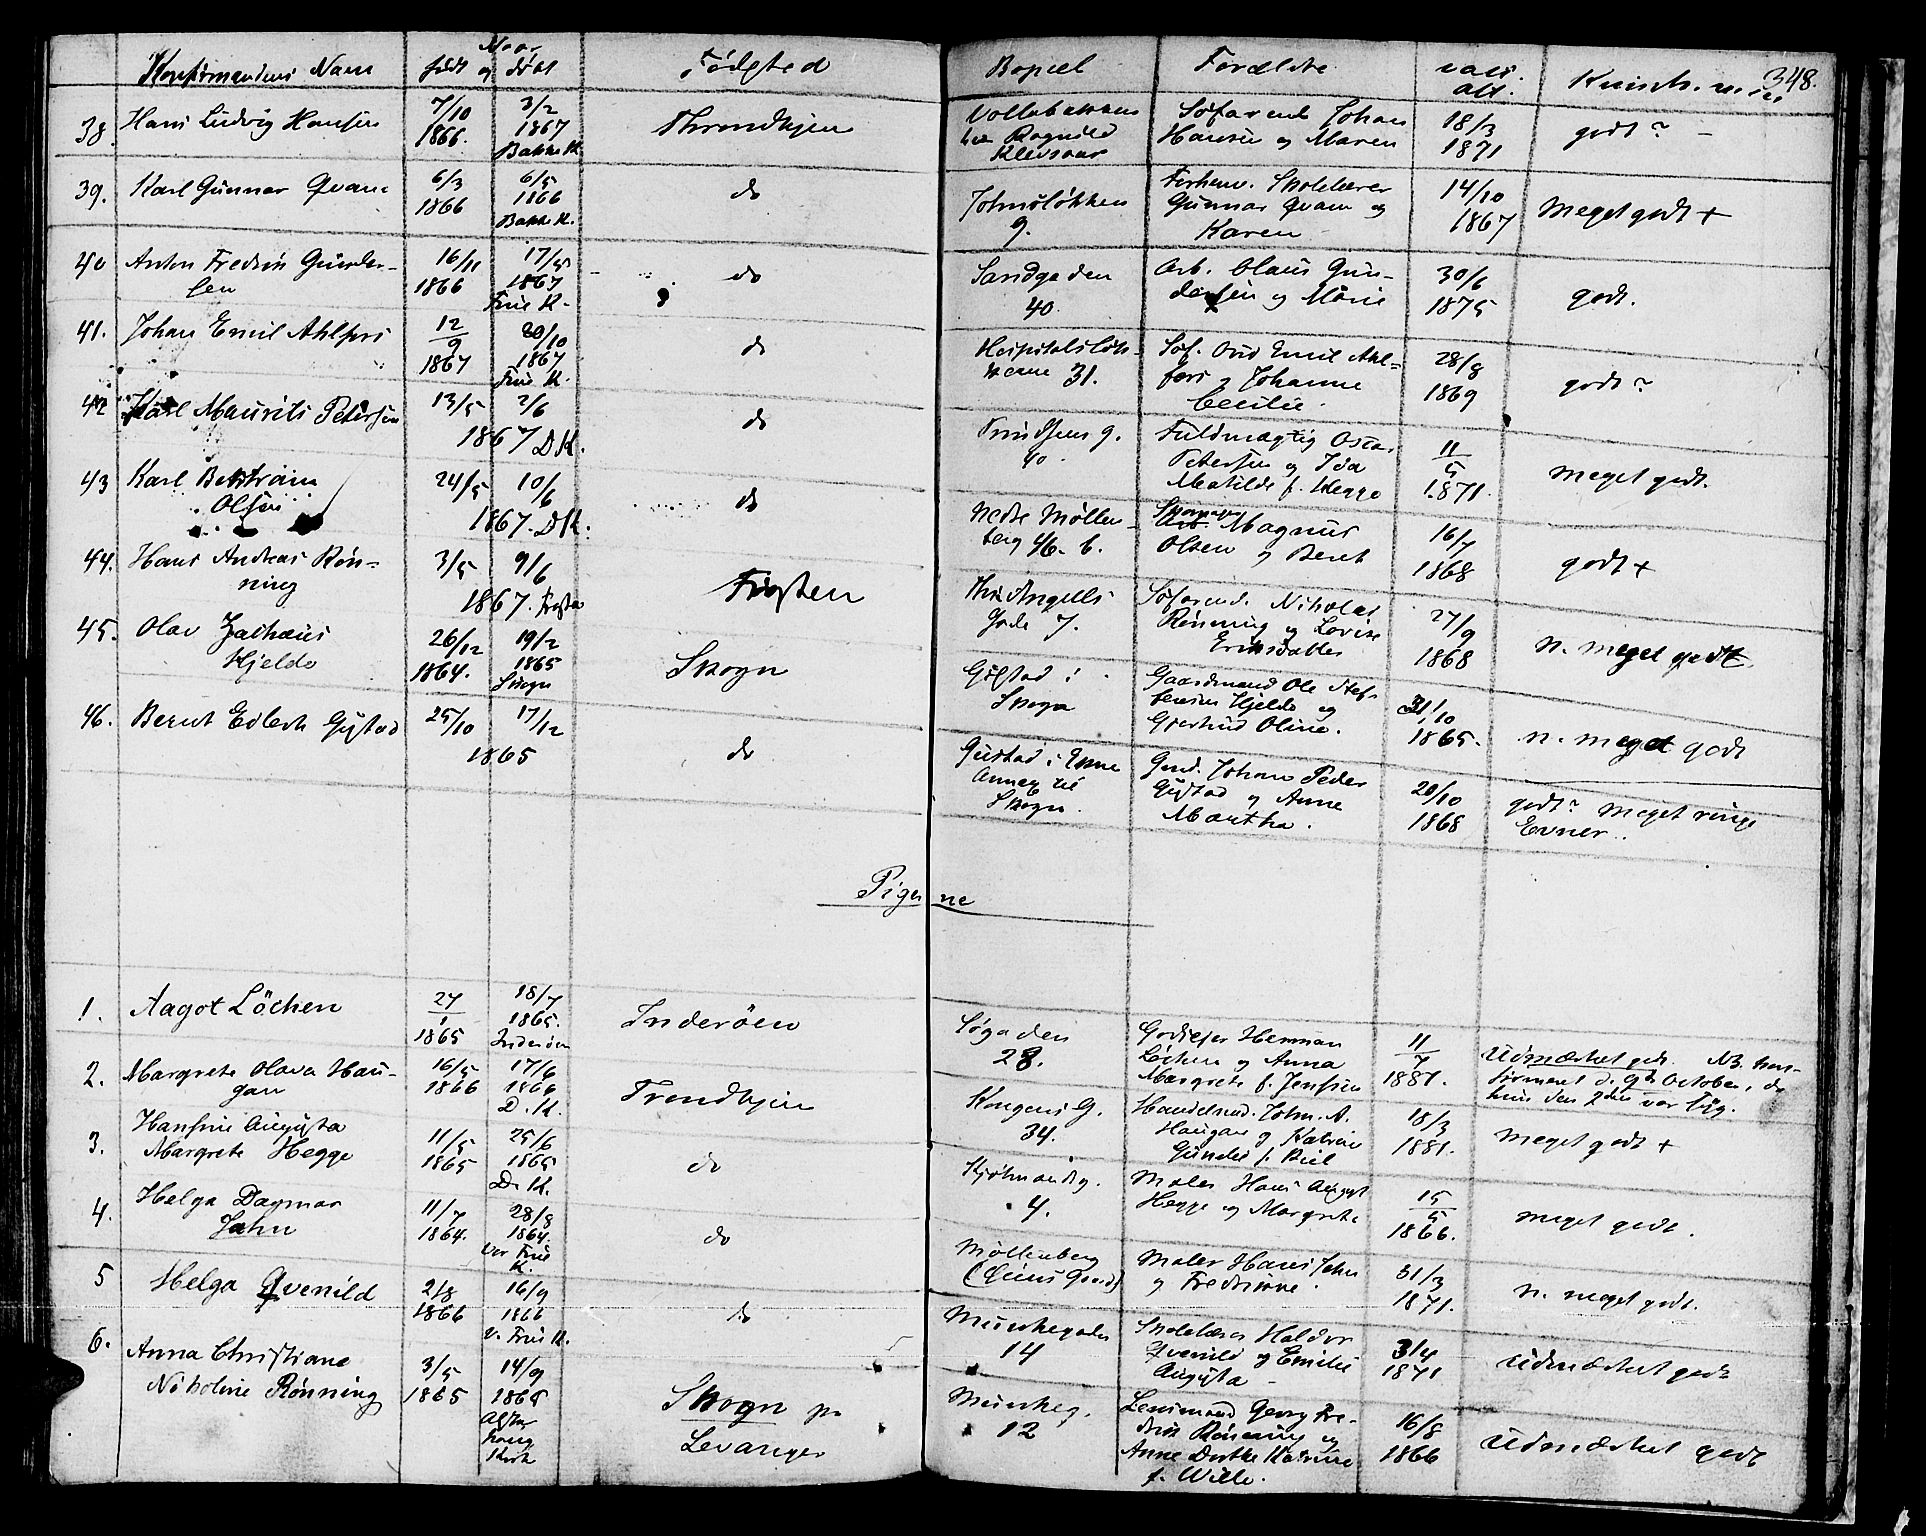 Konfirmandens Navn
Naar
født og døbt
Fødested
Bopæl
Forældre
vacc.
att.
Kundsk.
348.
38. Hans Ludvig Hansen
7/10 1866.
3/2 1867 Bakke K.
Throndhjem
Vollabakken
hos Ragnild
Søfarende Johan
Hansen og Maren
18/3 1871
godt?
39. Karl Gunnar Qvam
6/3 1866
6/5 1866 Bakke K.
do
9.
Forhenv. Skolelærer
Gunnar Qvam og
Karen
14/10 1867
Meget godt +
40 Anton Fredrik Gunder-
sen
16/11 1866
17/5 1867 Frue K.
do
Sandgaden
40.
Arb. Olaus Gun-
dersen og Marie
30/6 1875
godt.
41. Johan Emil Ahlfors
12/9 1867
20/10 1867 Frue K.
do
Hospitalsløk-
kerne 31.
Søf. Emil Ahl-
fors og Johanne
Cecilie.
28/8 1869
godt?
42 Karl Maurits Petersen
13/5 2/6
1867 D.K.
do
40.
Fuldmægtig Oscar
Petersen og Ida
Matilde f. Hegge
11/5 1871.
Meget godt.
43 Karl Bertram
Olsen
24/5 10/6
1867. D.K.
do
Nedre Møllen-
berg 46. b.
Magnus
Olsen og Beret
16/7 1868
godt +
44. Hans Andreas Røn-
ning
3/5 9/6
1867. Frosta
Frosten
Angells
Gade 7.
Søfarende Nikolai
Rønning og Lovise
Eriksdatter
27/9 1868
n. meget godt
45. Olav Zachæus
Hjelde
26/12 1864.
19/2 1865 Skogn
Skogn
Gystad i
Skogn
Gaardmand Ole Stef-
fensen Hjelde og
Gjertrud Oline.
31/10 1865.
n. meget godt
46. Bernt Edvart Gystad
25/10 17/12
1865
do
Gustad i
Annex til
Skogn.
Gmd. Johan Peder
Gystad og Anne
Martha.
20/10 1868
godt? meget ringe
Evner.
Pigerne
1. Aagot Löchen
27/1 1865
18/7 1865. Inderøen
Inderöen
Søgaden
28.
Godsejer Herman
Löchen og Anna
Margrete f. Jenssen
11/7 1881.
Udmærket godt. NB. kon-
firmeret d. 9de October, da
hun den 2den var syg.
2. Margrete Olava Hau-
gan
16/5 1866
17/6 1866 D.K.
Trondhjem
Kongens G.
34.
Handelsmd. Johs. A.
Haugan og Katrine
18/3 1881.
Meget godt +
3. Hansine Augusta
Margrete Hegge
11/5 1865
25/6 1865 D.K.
do
Kjøbmandsg.
4.
Maler Hans August
Hegge og Margrete
15/5 1866.
meget godt.
4. Helga Dagmar
Jahn
11/7 1864.
28/8 1864. Vor Frue K.
do
Møllenberg
Maler Hans Jahn
og Fredrikke.
31/3 1871.
n. meget godt.
5 Helga Qvenild
2/8 1866
16/9 1866 V. Frue K.
do
Munkegaden
14
Skolelærer Haldor
Qvenild og Emilie
Augusta
3/4 1871
Udmærket godt
6. Anna Christiane
Nikoline Rønning
3/5 1865
14/9 1865
Skogn pr
Levanger
Munkeg.
12
Lensmand Georg Fre-
drik Rønning og
Anne Dorthe Katrine
f. Wille.
16/8 1866
Udmærket godt